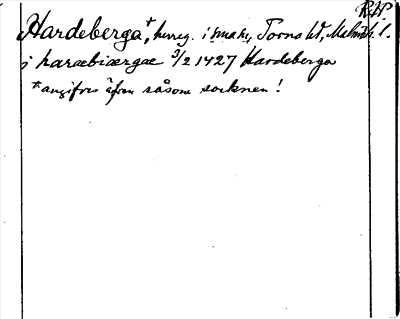 R.W.
Hardeberga⁺, herreg. i smaka, Torna hd, Malmöh. l.
j haræbiærgæ 3/2 1427 Hardeberga
⁺ angifves äfven såsom socknen!